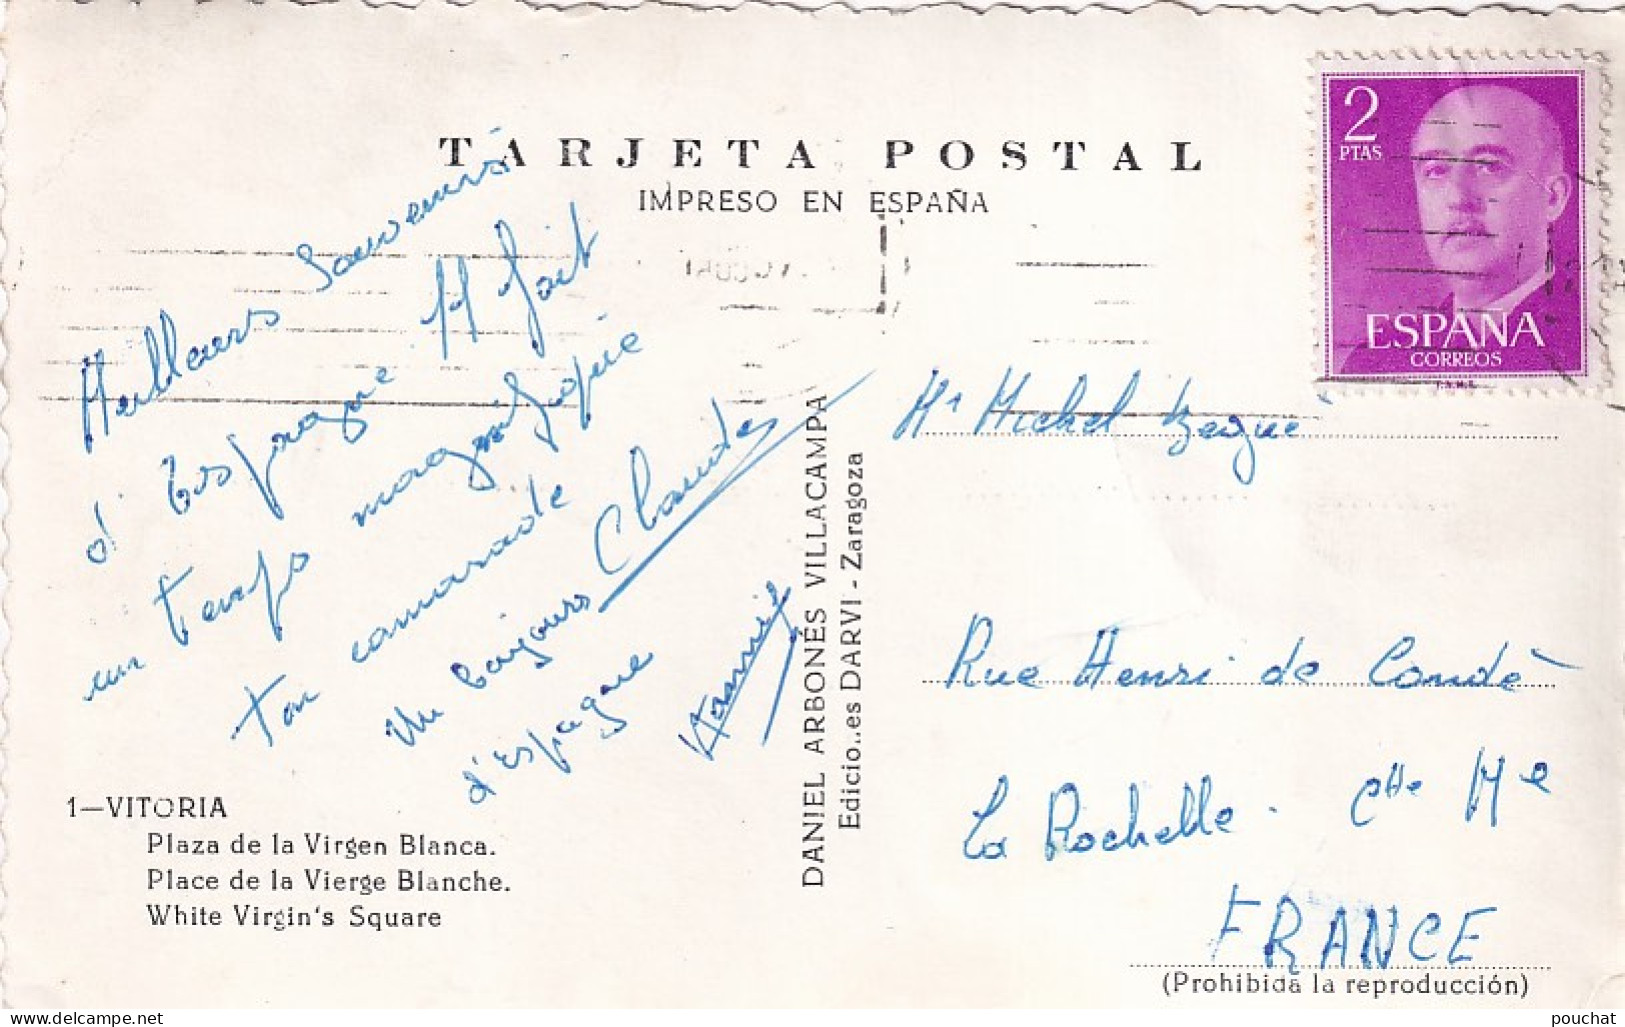 TARJETA POSTAL
IMPRESO EN ESPAÑA
2
PTAS
ESPAÑA
CORREOS
F.N.M.T.
Meilleurs souvenirs
d'Espagne. Il fait
un temps magnifique
ton camarade Claude
Un bonjours
d'espagne
DANIEL ARBONÉS VILLACAMPA
Edicio..es DARVI - Zaragoza
Mr Michel
Rue Henri de Condé
La Rochelle. Chte Me
FRANCE
1—VITORIA
Plaza de la Virgen Blanca.
Place de la Vierge Blanche.
White Virgin's Square
(Prohibida la reproducción)
delcampe.net
pouchat